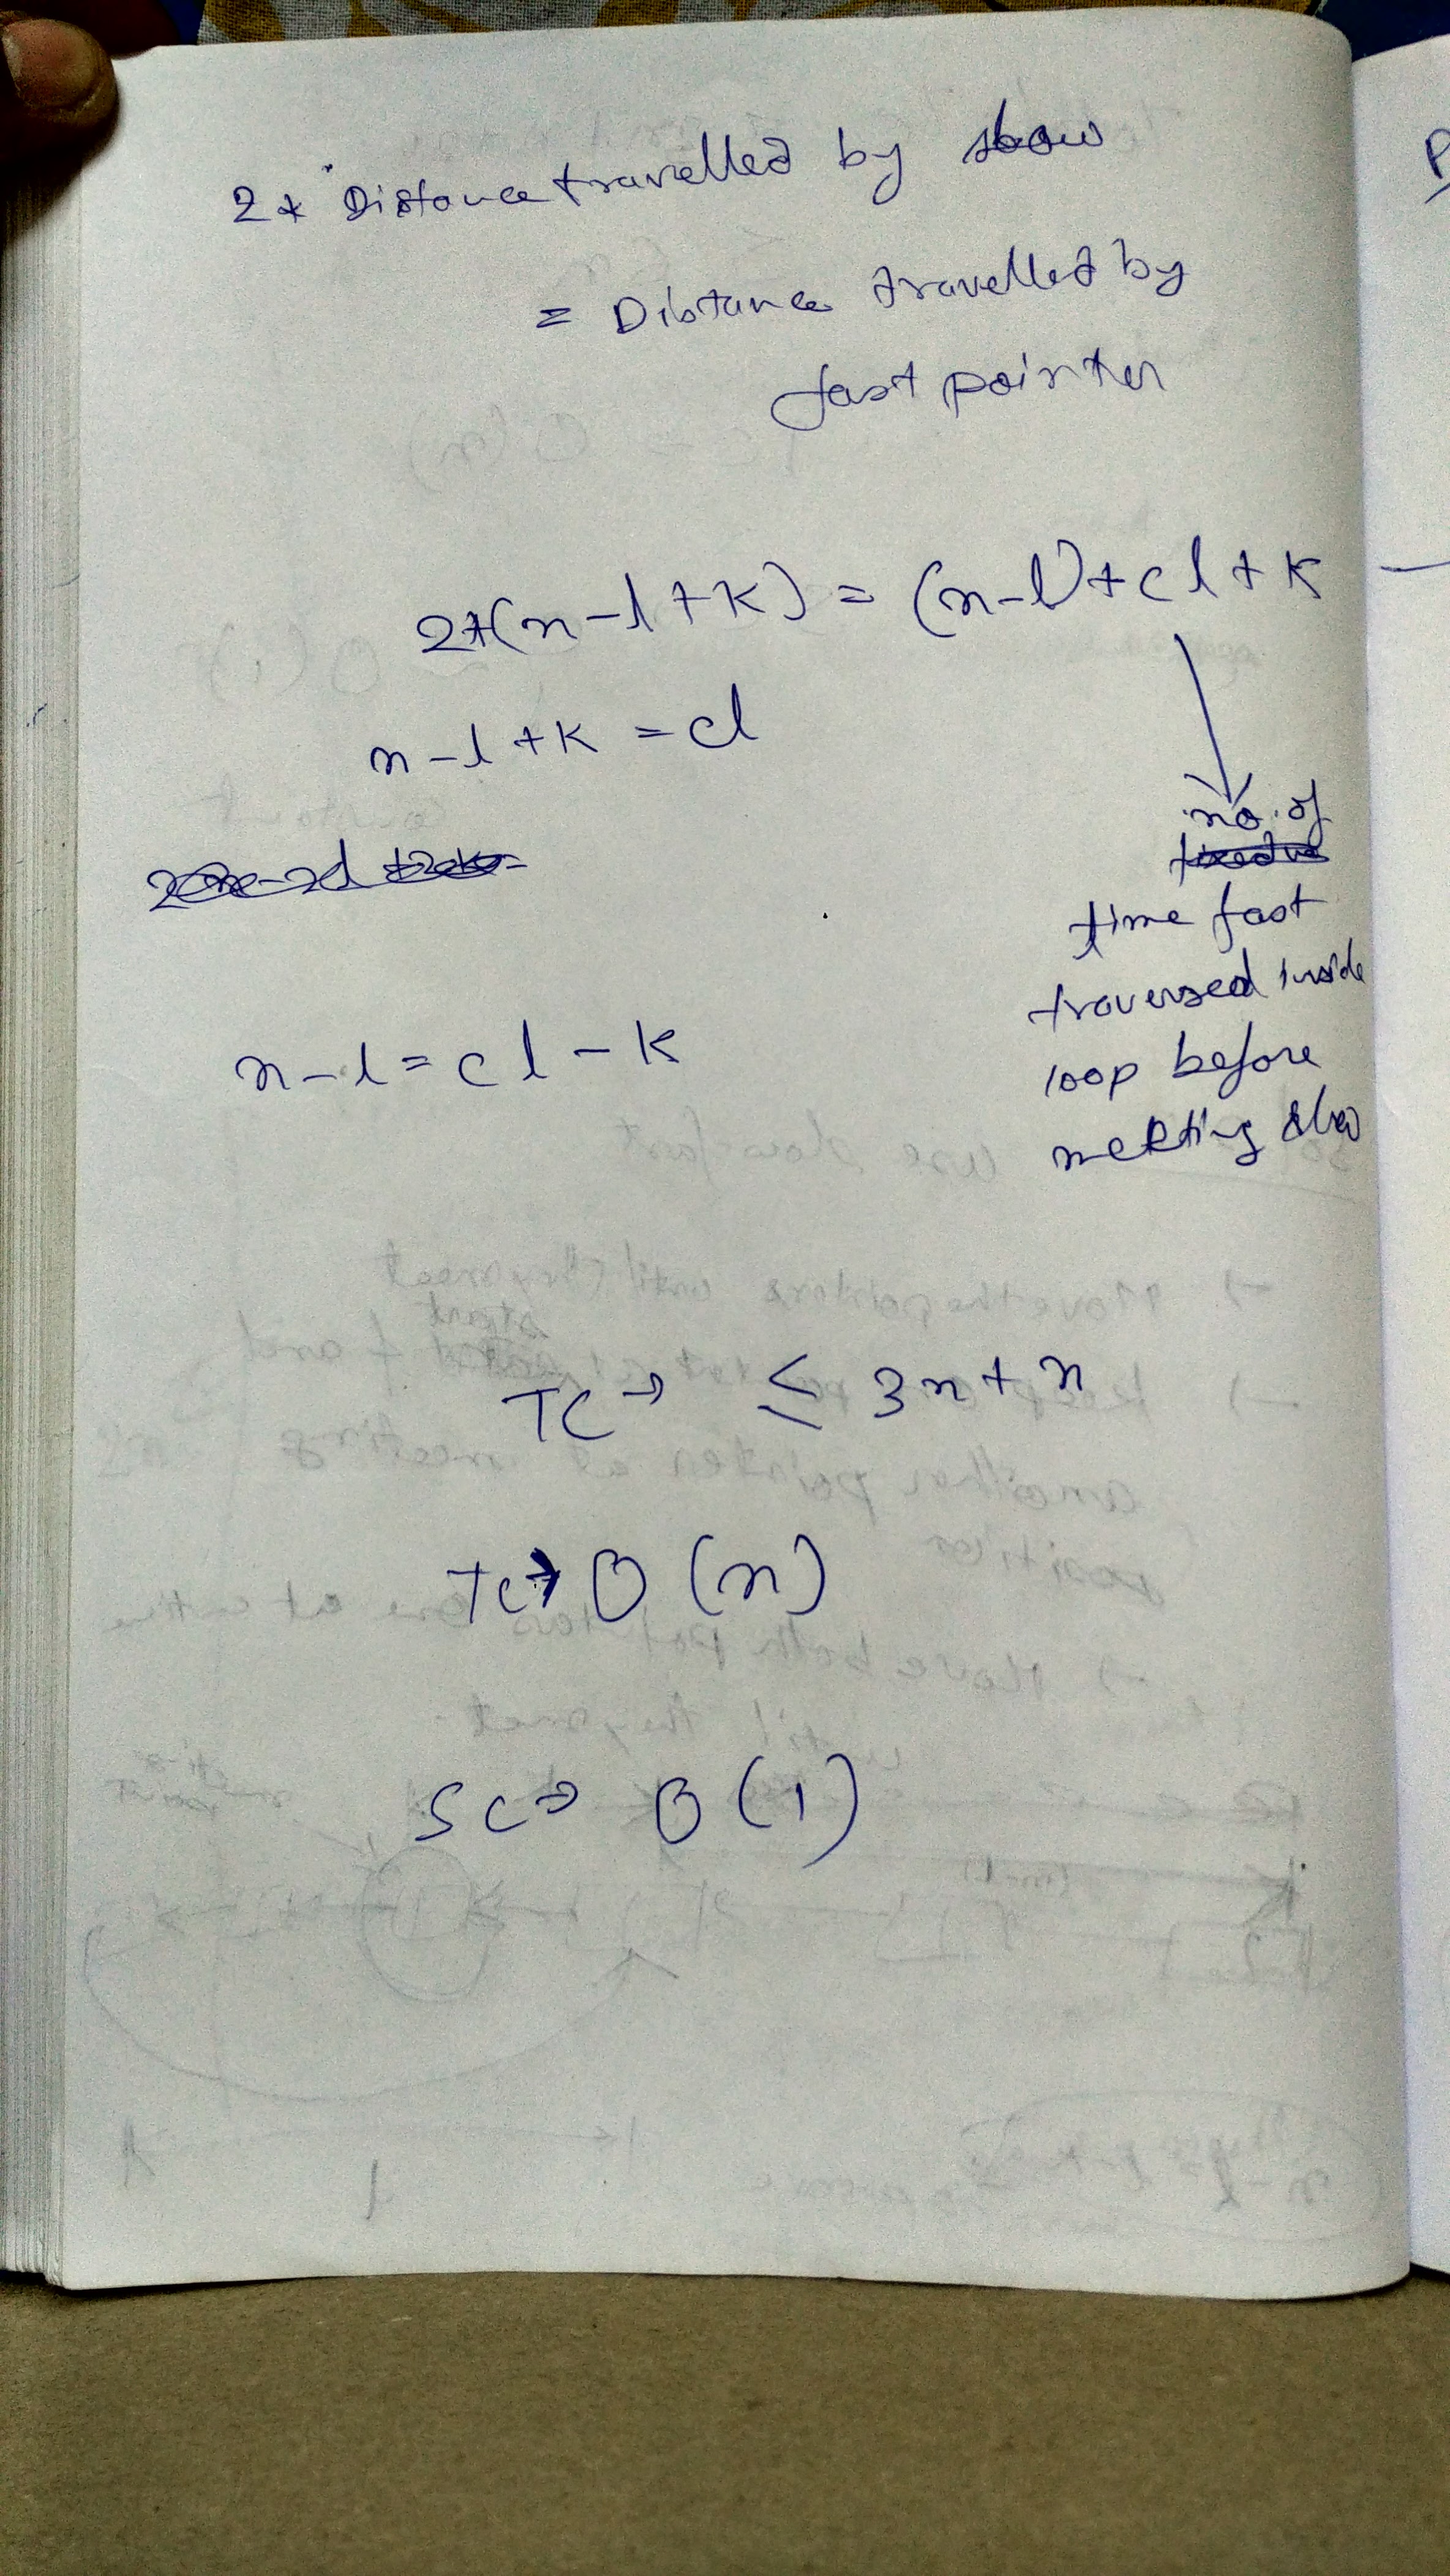 2* Distance travelled by slow
= Distance travelled by
fast pointer
2*(n-l+k) = (n-l)+cl+k
n-l+k = cl
no. of
time fast
traversed inside
loop before
meeting slow
n-l = cl-k
TC → ≤ 3n+n
TC → O(n)
SC → O(1)